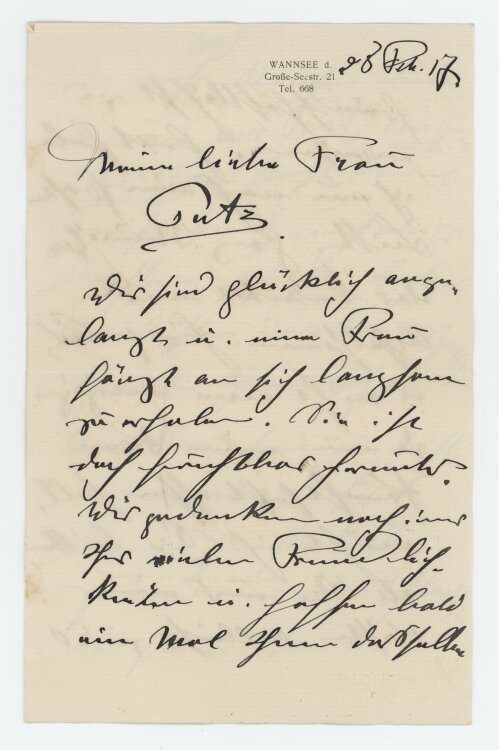 WANNSEE d. 28 Feb. 17.
Große-Seestr. 21
Tel. 668
Meine liebe Frau
Putz.
Wir sind glücklich ange-
langt u. meine Frau
fängt an sich langsam
zu erholen. Sie ist
doch furchtbar herunter.
Wir gedenken noch immer
Ihrer vielen Freundlich-
keiten u. hoffen bald
ein Mal Ihnen dasselbe